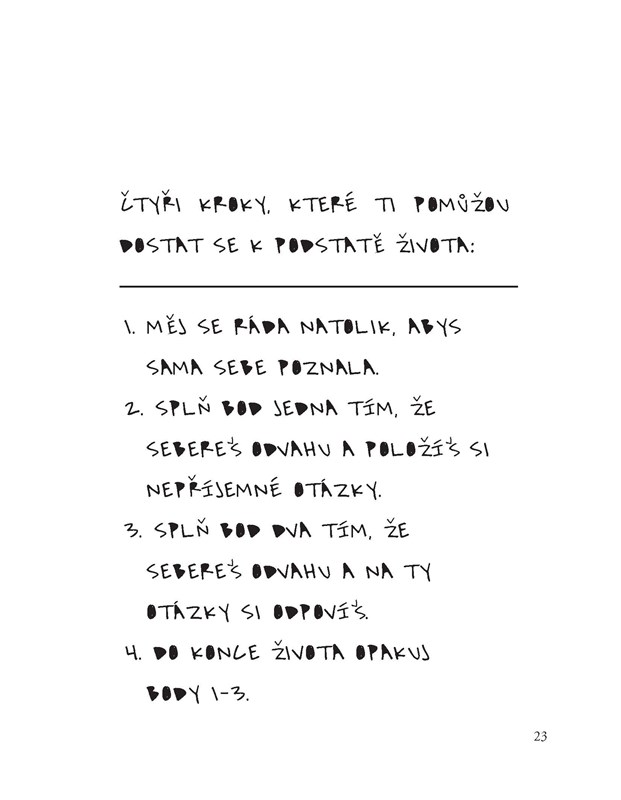 ČTYŘI KROKY, KTERÉ TI POMŮŽOU
DOSTAT SE K PODSTATĚ ŽIVOTA:
1. MĚJ SE RÁDA NATOLIK, ABYS
SAMA SEBE POZNALA.
2. SPLŇ BOD JEDNA TÍM, ŽE
SEBEREŠ ODVAHU A POLOŽÍŠ SI
NEPŘÍJEMNÉ OTÁZKY.
3. SPLŇ BOD DVA TÍM, ŽE
SEBEREŠ ODVAHU A NA TY
OTÁZKY SI ODPOVÍŠ.
4. DO KONCE ŽIVOTA OPAKUJ
BODY 1-3.
23